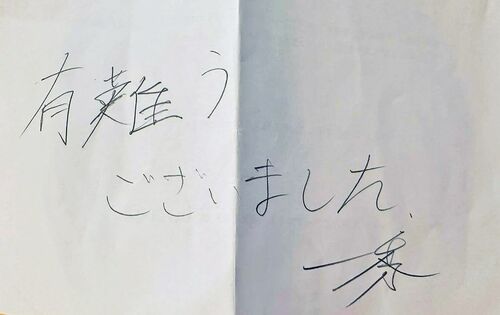 有難う
ございました、